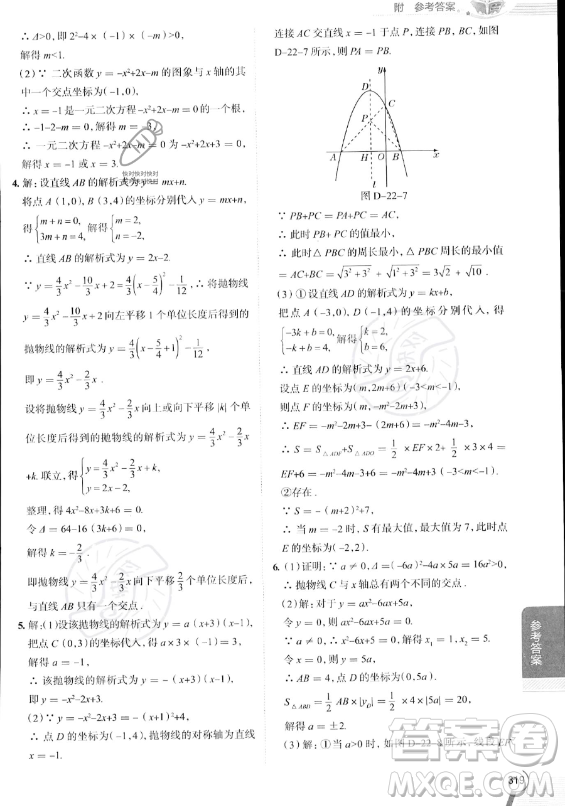 附 参考答案
∴ Δ>0,即 2²-4×(-1)×(-m)>0.
解得 m<1.
(2)∵ 二次函数 y=-x²+2x-m 的图象与 x 轴的其
中一个交点坐标为(-1,0),
∴ x=-1 是一元二次方程-x²+2x-m=0 的一个根,
∴ -1-2-m=0,∴ m=-3,
∴ 一元二次方程为-x²+2x+3=0.
解得 x=-1 或 x=3.
快对快对快对
4.解:设直线 AB 的解析式为 y=mx+n.
将点 A(1,0),B(3,4)的坐标分别代入 y=mx+n,
得{m+n=0, 3m+n=4, 解得{m=2, n=-2.
∴ 直线 AB 的解析式为 y=2x-2.
∵ y=4/3x²-10/3x+2=4/3(x-5/4)²-1/12,∴ 将抛物
线 y=4/3x²-10/3x+2 向左平移 1 个单位长度后得到的
抛物线的解析式为 y=4/3(x-5/4+1)²-1/12,
即 y=4/3x²-2/3x.
设将抛物线 y=4/3x²-2/3x 向上或向下平移 |k| 个单
位长度后得到的抛物线的解析式为 y=4/3x²-2/3x
+k.联立,得{y=4/3x²-2/3x+k, y=2x-2,
整理,得 4x²-8x+3k+6=0.
令 Δ=64-16(3k+6)=0,
解得 k=-2/3.
即抛物线 y=4/3x²-2/3x 向下平移 2/3 个单位长度后,
与直线 AB 只有一个交点.
5.解:(1)设该抛物线的解析式为 y=a(x+3)(x-1).
把点 C(0,3)的坐标代入,得 a×3×(-1)=3,
解得 a=-1.
∴ 该抛物线的解析式为 y=-(x+3)(x-1),
即 y=-x²-2x+3.
(2)∵ y=-(x+1)²+4,
∴ 点 D 的坐标为(-1,4),抛物线的对称轴为直线
x=-1.
连接 AC 交直线 x=-1 于点 P,连接 PB,BC,如图
D-22-7 所示,则 PB=PA.
y
D
C
P
A
H
O
B
x
l
图 D-22-7
∵ PB+PC=PA+PC=AC,
∴ 此时 PB+PC 的值最小,
∴ 此时△PBC 的周长最小,△PBC 的周长的最小值
=AC+BC=√3²+3²+√1²+3²=3√2+√10.
(3)①设直线 AD 的解析式为 y=kx+b,
把点 A(-3,0),D(-1,4)的坐标分别代入,得
{-3k+b=0, -k+b=4, 解得{k=2, b=6.
∴ 直线 AD 的解析式为 y=2x+6.
设点 E 的坐标为(m,2m+6)(-3<m<-1),
则点 F 的坐标为(m,-m²-2m+3),
∴ EF=-m²-4m-3,
∴ S=S△ADF+S△ADO=1/2×EF×2+1/2×3×4=
EF+6=-m²-4m+3(-3<m<-1).
②存在.
∵ S=-(m+2)²+7,
∴ 当 m=-2 时,S 有最大值,最大值为 7,此时点
E 的坐标为(-2,2).
6.(1)证明:∵ a≠0,∴ Δ=(-6a)²-4a×5a=16a²>0,
∴ 抛物线与 x 轴总有两个不同的交点.
(2)解:令 y=0,则 ax²-6ax+5a=0,
∵ a≠0,∴ x²-6x+5=0,解得 x₁=1,x₂=5.
令 x=0,则 y=5a,
∴ 点 D 的坐标为(0,5a).
S△ABD=1/2AB×|y_D|=1/2×4×|5a|=20,
解得 a=±2.
(3)解:①当 a>0 时,如图 D-22-8 所示,线段 EF
参考答案
答案圈
MXQE.COM
319